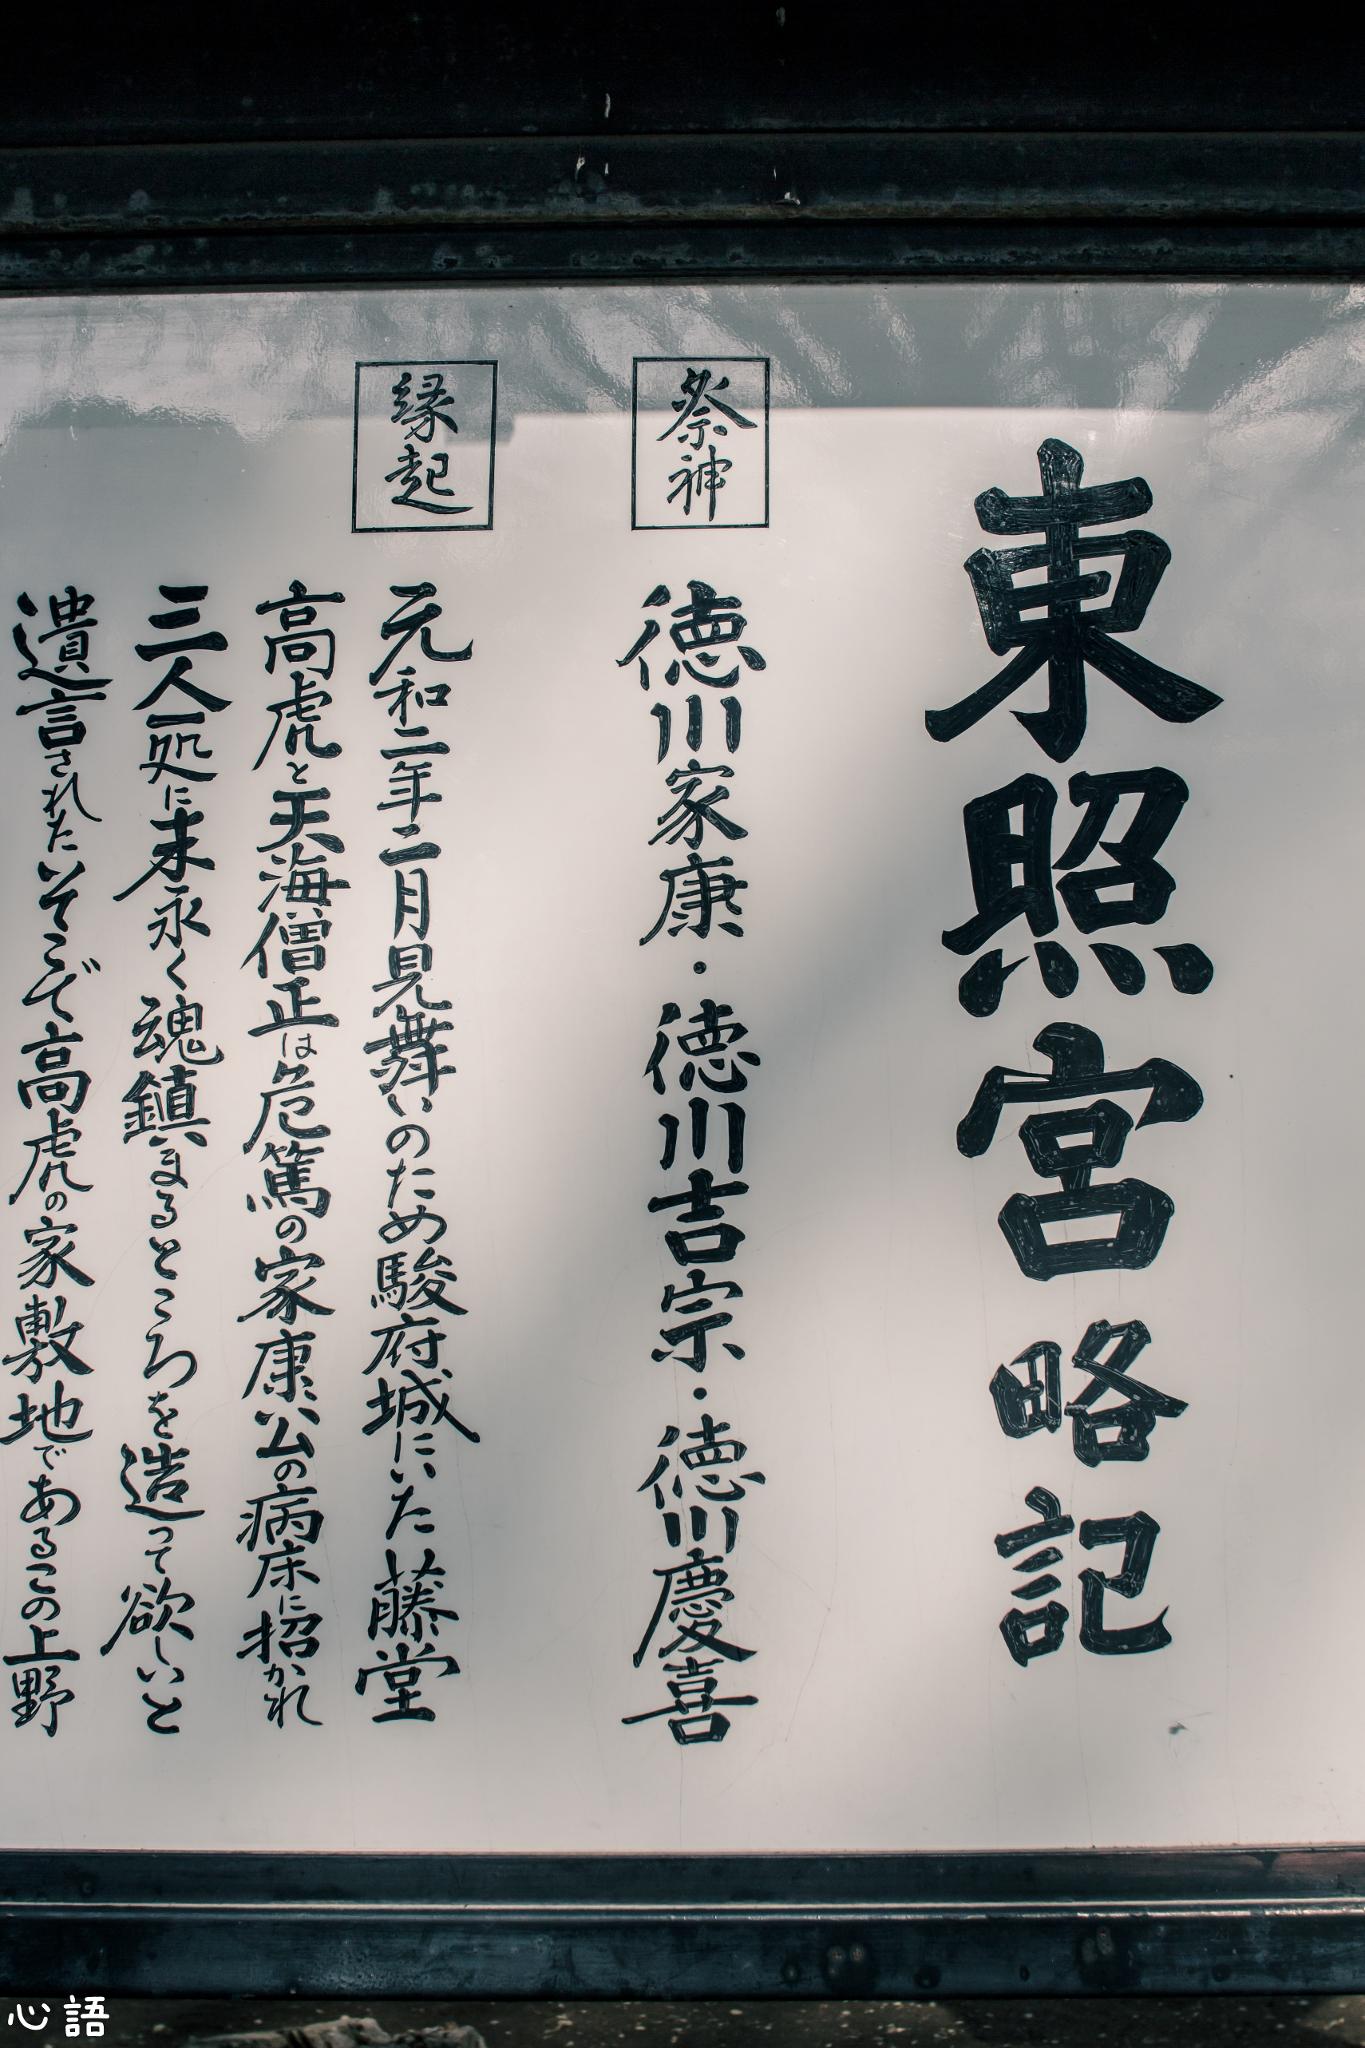 東照宮略記
祭神
徳川家康・徳川吉宗・徳川慶喜
縁起
元和二年二月見舞いのため駿府城にいた藤堂
高虎と天海僧正は危篤の家康公の病床に招かれ
三人一処に末永く魂鎮まるところを造って欲しいと
遺言されたいそこで高虎の家敷地であるこの上野
心語